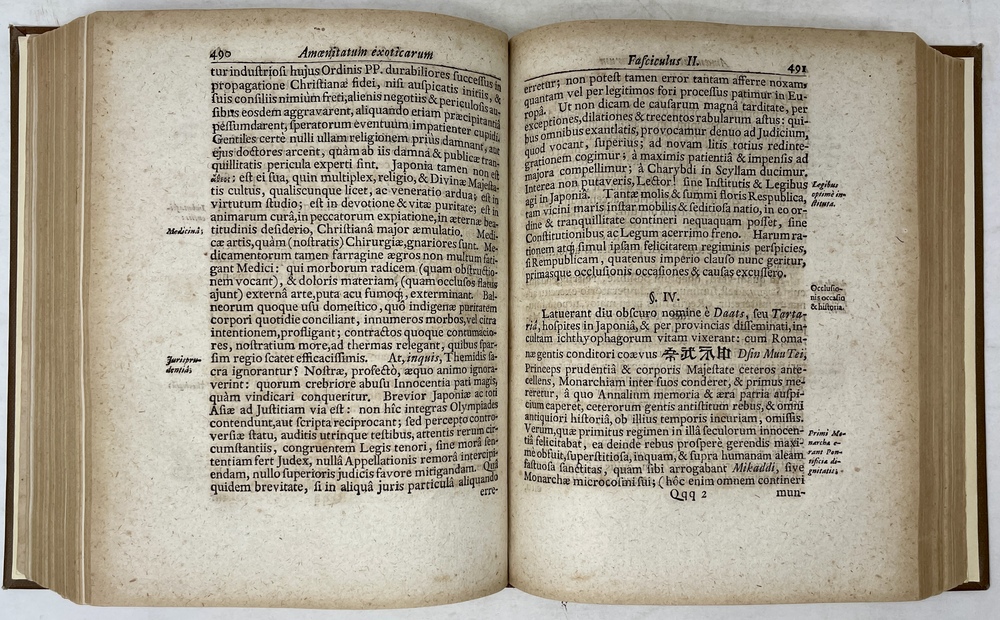 490 Amœnitatum exoticarum
tur industriosi hujus Ordinis PP. durabiliores successus in
propagatione Christianæ fidei, nisi auspicatis initiis, &
suis consiliis nimium freti, alienis negotiis & periculosis au-
sibus eosdem aggravarent, aliquando etiam præcipitantiâ
pessumdarent, speratorum eventuum impatienter cupidi.
Gentiles certè nulli ullam religionem priùs damnant, aut
ejus doctores arcent, quàm ab iis damna & publicæ tran-
quillitatis pericula experti sint. Japonia tamen non est
ἄθεος: est ei sua, quin multiplex, religio, & Divinæ Majesta-
tis cultus, qualiscunque licet, ac veneratio ardua; est in
virtutum studio; est in devotione & vitæ puritate; est in
animarum curâ, in peccatorum expiatione, in æternæ bea-
titudinis desiderio, Christianâ major æmulatio. Medi-
Medicinâ;
cæ artis, quàm (nostratis) Chirurgiæ, gnariores sunt. Me-
dicamentorum tamen farragine ægros non multum fati-
gant Medici: qui morborum radicem (quam obstructio-
nem vocant), & doloris materiam, (quam occlusos flatus
ajunt) externâ arte, puta acu fumoq;, exterminant. Bal-
neorum quoque usu domestico, quo indigenæ puritatem
corpori quotidie conciliant, innumeros morbos, vel citra
intentionem, profligant; contractos quoque contumacio-
res, nostratium more, ad thermas relegant, quibus spar-
sim regio scatet efficacissimis. At, inquis, Themidis sa-
Jurispru-
dentiâ;
cra ignorantur? Nostræ, profectò, æquo animo ignora-
verint: quorum crebriore abusu Innocentia pati magis,
quàm vindicari conqueritur. Brevior Japoniæ ac toti
Asiæ ad Justitiam via est: non hîc integras Olympiades
contendunt, aut scripta reciprocant; sed percepto contro-
versiæ statu, auditis utrinque testibus, attentis rerum cir-
cumstantiis, congruentem Legis tenori, sine morâ sen-
tentiam fert Judex, nullâ Appellationis remorâ intercipi-
endam, nullo superioris judicis favore mitigandam. Quâ
quidem brevitate, si in aliquâ juris particulâ aliquando
erre-
Fasciculus II. 491
erretur; non potest tamen error tantam afferre noxam,
quantam vel per legitimos fori processus patimur in Eu-
ropâ. Ut non dicam de causarum magnâ tarditate, per
exceptiones, dilationes & trecentos rabularum astus: qui-
bus omnibus exantlatis, provocamur denuo ad Judicium,
quod vocant, superius; ad novam litis totius redinte-
grationem cogimur; à maximis patientiâ & impensis ad
majora compellimur; à Charybdi in Scyllam ducimur.
Interea non putaveris, Lector! sine Institutis & Legibus
Legibus
optimè in-
stituta.
agi in Japoniâ. Tantæ molis & summi floris Respublica,
tam vicini maris instar mobilis & seditiosa natio, in eo or-
dine & tranquillitate contineri nequaquam posset, sine
Constitutionibus ac Legum acerrimo freno. Harum ra-
tionem atq; simul ipsam felicitatem regiminis perspicies,
si Rempublicam, quatenus imperio clauso nunc geritur,
primasque occlusionis occasiones & causas excussero.
§. IV.
Occlusio-
nis occasio
& historia.
Latuerant diu obscuro nomine è Daats, seu Tarta-
riâ, hospites in Japoniâ, & per provincias disseminati, in-
cultam ichthyophagorum vitam vixerant: cum Roma-
næ gentis conditori coævus Dsin Muu Tei,
Princeps prudentiâ & corporis Majestate ceteros ante-
cellens, Monarchiam inter suos conderet, & primus me-
reretur, à quo Annalium memoria & æra patria auspi-
cium caperet, ceterorum gentis antistitum rebus, & omni
antiquiori historiâ, ob illius temporis incuriam, omissis.
Verum, quæ primitus regimen in illâ seculorum innocen-
Primi Mo-
narchæ e-
rant Pon-
tificia di-
gnitatis.
tiâ felicitabat, ea deinde rebus prosperè gerendis maxi-
mè obfuit, superstitiosa, inquam, & supra humanam aleam
fastuosa sanctitas, quam sibi arrogabant Mikaddi, sive
Monarchæ microcosmi sui; (hôc enim omnem contineri
Qqq 2 mun-